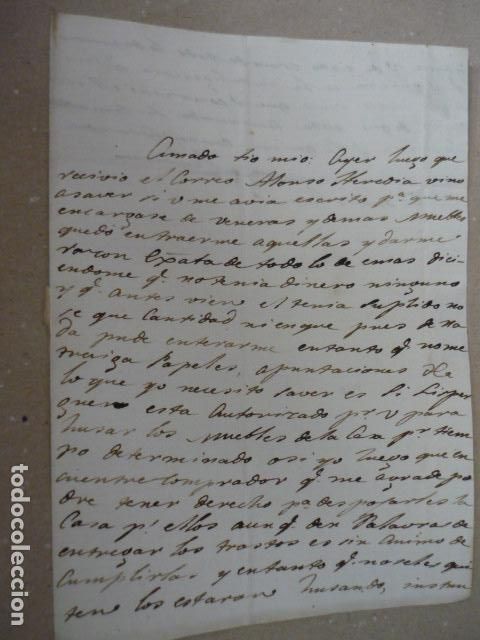 Amado tio mio: Ayer luego que
recivio el Correo Alonso Heredia vino
a saver si V me avia escrito pª que me
encargase de veneras y demas muebles
quedo entraerme aquellas y darme
razon Exacta de todo lo demas dici
endome qᵉ no tenia dinero ninguno
y qᵉ antes viene el tenia suplido no
se que Cantidad, ni en que pues de na
da pude enterarme entanto qᵉ no me
traiga Papeles, apuntaciones &ª
lo que yo necesito saver es si
guero esta Autorizado pʳ V para
husar los Muebles de la Casa pʳ tiem
po determinado o si yo luego que en
cuentre Comprador qᵉ me agrade po
dre tener derecho pª despojarles la
Casa pˢ Ellos aunqᵉ den Palavra de
entregar los trastos es sin Animo de
Cumplirla, y entanto qᵉ no seles qui
ten los estaran husando,
todocoleccion
todocoleccion